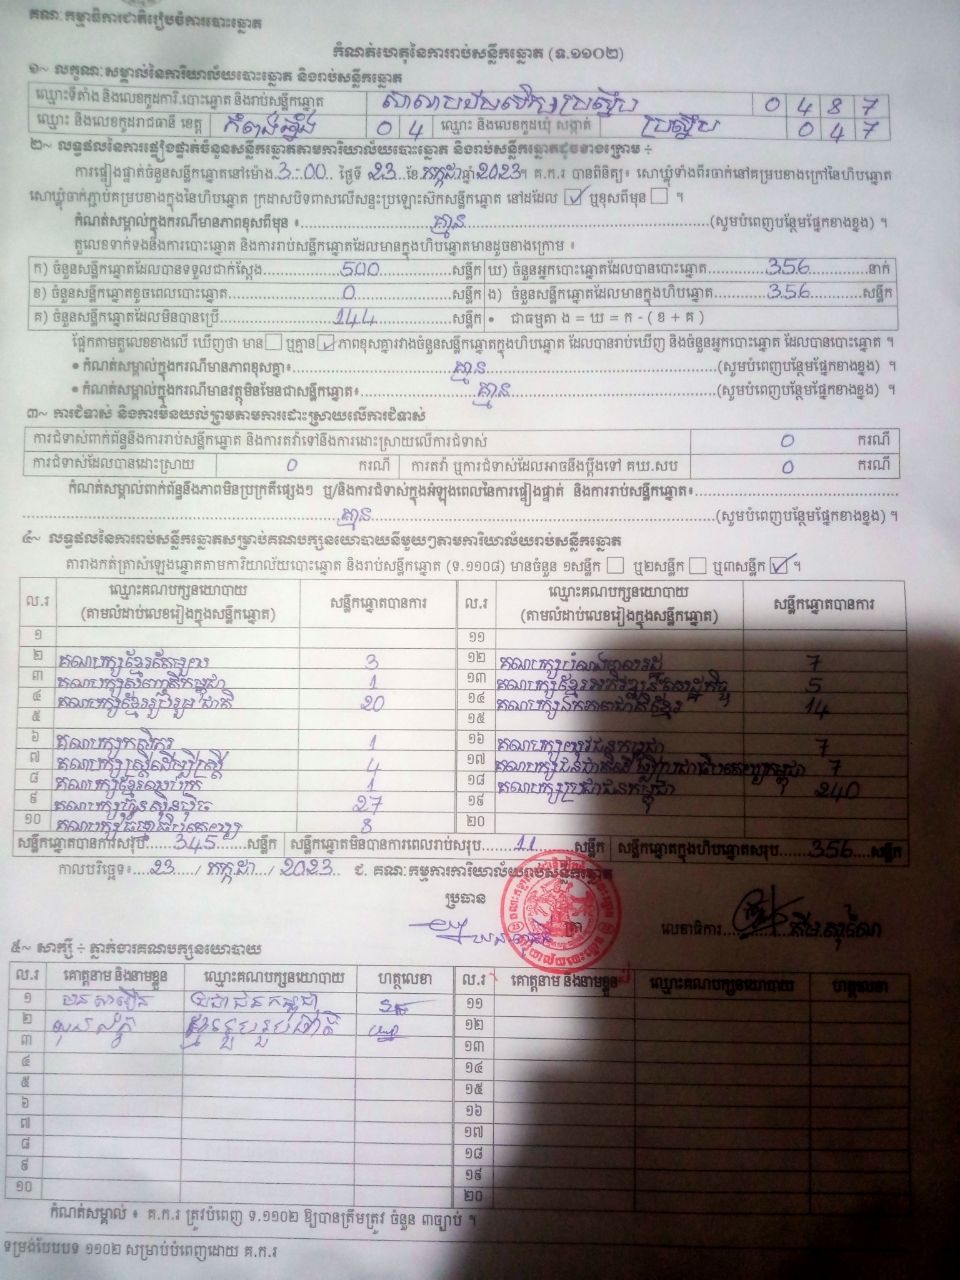 គណៈកម្មាធិការជាតិរៀបចំការបោះឆ្នោត
កំណត់ហេតុនៃការរាប់សន្លឹកឆ្នោត (ទ.១១០២)
១~ លក្ខណៈសម្គាល់នៃការិយាល័យបោះឆ្នោត និងរាប់សន្លឹកឆ្នោត
ឈ្មោះទីតាំង និងលេខកូដការិ.បោះឆ្នោត និងរាប់សន្លឹកឆ្នោត 0 4 8 7
ឈ្មោះ និងលេខកូដរាជធានី ខេត្ត កំពង់ឆ្នាំង 0 4 ឈ្មោះ និងលេខកូដឃុំ សង្កាត់ ប្រស្នឹប 0 4 7
២~ លទ្ធផលនៃការផ្ទៀងផ្ទាត់ចំនួនសន្លឹកឆ្នោតតាមការិយាល័យបោះឆ្នោត និងរាប់សន្លឹកឆ្នោតដូចខាងក្រោម ÷
ការផ្ទៀងផ្ទាត់ចំនួនសន្លឹកឆ្នោតនៅម៉ោង 3:00 ថ្ងៃទី 23 ខែ កក្កដា ឆ្នាំ 2023។ គ.ក.រ បានពិនិត្យ៖ សោឃ្លុំទាំងពីរចាក់នៅគម្របខាងក្រៅនៃហិបឆ្នោត
សោឃ្លុំចាក់ភ្ជាប់គម្របខាងក្នុងនៃហិបឆ្នោត ក្រដាសបិទពាសលើសន្ទះប្រឡោះស៊កសន្លឹកឆ្នោត នៅដដែល ☑ ឬខុសពីមុន ☐ ។
កំណត់សម្គាល់ក្នុងករណីមានភាពខុសពីមុន ៖ គ្មាន (សូមបំពេញបន្ថែមផ្នែកខាងខ្នង) ។
តួលេខទាក់ទងនឹងការបោះឆ្នោត និងការរាប់សន្លឹកឆ្នោតដែលមានក្នុងហិបឆ្នោតមានដូចខាងក្រោម ៖
ក) ចំនួនសន្លឹកឆ្នោតដែលបានទទួលជាក់ស្តែង 500 សន្លឹក ឃ) ចំនួនអ្នកបោះឆ្នោតដែលបានបោះឆ្នោត 356 នាក់
ខ) ចំនួនសន្លឹកឆ្នោតខូចពេលបោះឆ្នោត 0 សន្លឹក ង) ចំនួនសន្លឹកឆ្នោតដែលមានក្នុងហិបឆ្នោត 356 សន្លឹក
គ) ចំនួនសន្លឹកឆ្នោតដែលមិនបានប្រើ 144 សន្លឹក • ជាធម្មតា ង = ឃ = ក - ( ខ + គ )
ផ្អែកតាមតួលេខខាងលើ ឃើញថា មាន ☐ ឬគ្មាន ☑ ភាពខុសគ្នារវាងចំនួនសន្លឹកឆ្នោតក្នុងហិបឆ្នោត ដែលបានរាប់ឃើញ និងចំនួនអ្នកបោះឆ្នោត ដែលបានបោះឆ្នោត ។
• កំណត់សម្គាល់ក្នុងករណីមានភាពខុសគ្នា៖ គ្មាន (សូមបំពេញបន្ថែមផ្នែកខាងខ្នង) ។
• កំណត់សម្គាល់ក្នុងករណីមានវត្ថុមិនមែនជាសន្លឹកឆ្នោត៖ គ្មាន (សូមបំពេញបន្ថែមផ្នែកខាងខ្នង) ។
៣~ ការជំទាស់ និងការមិនយល់ព្រមតាមការដោះស្រាយលើការជំទាស់
ការជំទាស់ពាក់ព័ន្ធនឹងការរាប់សន្លឹកឆ្នោត និងការតវ៉ាទៅនឹងការដោះស្រាយលើការជំទាស់ 0 ករណី
ការជំទាស់ដែលបានដោះស្រាយ 0 ករណី ការតវ៉ា ឬការជំទាស់ដែលអាចនឹងប្តឹងទៅ គឃ.សប 0 ករណី
កំណត់សម្គាល់ពាក់ព័ន្ធនឹងភាពមិនប្រក្រតីផ្សេងៗ ឬ/និងការជំទាស់ក្នុងអំឡុងពេលនៃការផ្ទៀងផ្ទាត់ និងការរាប់សន្លឹកឆ្នោត៖
គ្មាន (សូមបំពេញបន្ថែមផ្នែកខាងខ្នង) ។
៤~ លទ្ធផលនៃការរាប់សន្លឹកឆ្នោតសម្រាប់គណបក្សនយោបាយនីមួយៗតាមការិយាល័យរាប់សន្លឹកឆ្នោត
តារាងកត់ត្រាសំឡេងឆ្នោតតាមការិយាល័យបោះឆ្នោត និងរាប់សន្លឹកឆ្នោត (ទ.១១០៨) មានចំនួន ១សន្លឹក ☐ ឬ២សន្លឹក ☐ ឬ៣សន្លឹក ☑ ។
ល.រ ឈ្មោះគណបក្សនយោបាយ (តាមលំដាប់លេខរៀងក្នុងសន្លឹកឆ្នោត) សន្លឹកឆ្នោតបានការ ល.រ ឈ្មោះគណបក្សនយោបាយ (តាមលំដាប់លេខរៀងក្នុងសន្លឹកឆ្នោត) សន្លឹកឆ្នោតបានការ
១ ១១
២ គណបក្សខ្មែរតែមួយ 3 ១២ 7
៣ គណបក្សសញ្ជាតិកម្ពុជា 1 ១៣ គណបក្សខ្មែរអភិវឌ្ឍន៍សេដ្ឋកិច្ច 5
៤ គណបក្សខ្មែររួបរួមជាតិ 20 ១៤ គណបក្សឯកភាពជាតិខ្មែរ 14
៥ ១៥
៦ គណបក្សកសិករ 1 ១៦ គណបក្សយុវជនកម្ពុជា 7
៧ គណបក្សស្ត្រីដើម្បីស្ត្រី 4 ១៧ គណបក្សជនជាតិដើមប្រជាធិបតេយ្យកម្ពុជា 7
៨ គណបក្សខ្មែរឈប់ក្រ 1 ១៨ គណបក្សប្រជាជនកម្ពុជា 240
៩ គណបក្សហ៊្វុនស៊ិនប៉ិច 27 ១៩
១០ គណបក្សធម្មាធិបតេយ្យ 8 ២០
សន្លឹកឆ្នោតបានការសរុប 345 សន្លឹក សន្លឹកឆ្នោតមិនបានការពេលរាប់សរុប 11 សន្លឹក សន្លឹកឆ្នោតក្នុងហិបឆ្នោតសរុប 356 សន្លឹក
កាលបរិច្ឆេទ៖ 23 / កក្កដា / 2023 ជ. គណៈកម្មការការិយាល័យរាប់សន្លឹកឆ្នោត
ប្រធាន
លេខាធិការ
៥~ សាក្សី ÷ ភ្នាក់ងារគណបក្សនយោបាយ
ល.រ គោត្តនាម និងនាមខ្លួន ឈ្មោះគណបក្សនយោបាយ ហត្ថលេខា ល.រ គោត្តនាម និងនាមខ្លួន ឈ្មោះគណបក្សនយោបាយ ហត្ថលេខា
១ ប្រជាជនកម្ពុជា ១១
២ ខ្មែររួបរួមជាតិ ១២
៣ ១៣
៤ ១៤
៥ ១៥
៦ ១៦
៧ ១៧
៨ ១៨
៩ ១៩
១០ ២០
កំណត់សម្គាល់ ៖ គ.ក.រ ត្រូវបំពេញ ទ.១១០២ ឱ្យបានត្រឹមត្រូវ ចំនួន ៣ច្បាប់ ។
ទម្រង់បែបបទ ១១០២ សម្រាប់បំពេញដោយ គ.ក.រ